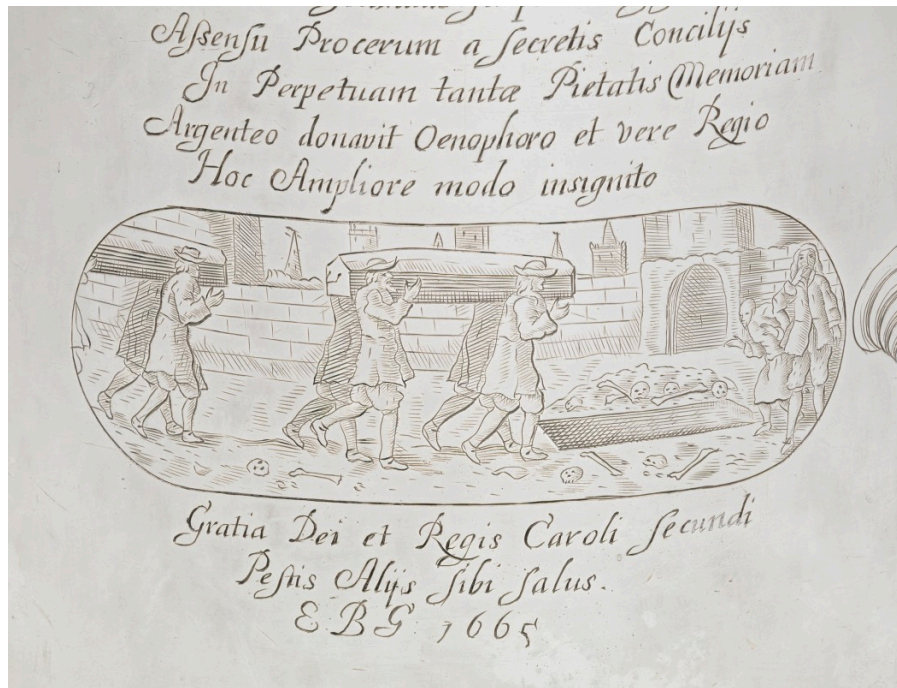 Aſsenſu Procerum a ſecretis Concilijs
In Perpetuam tantæ Pietatis Memoriam
Argenteo donavit Oenophoro et vere Regio
Hoc Ampliore modo insignito
Gratia Dei et Regis Caroli ſecundi
Peſtis Alijs ſibi ſalus.
E B G 1665